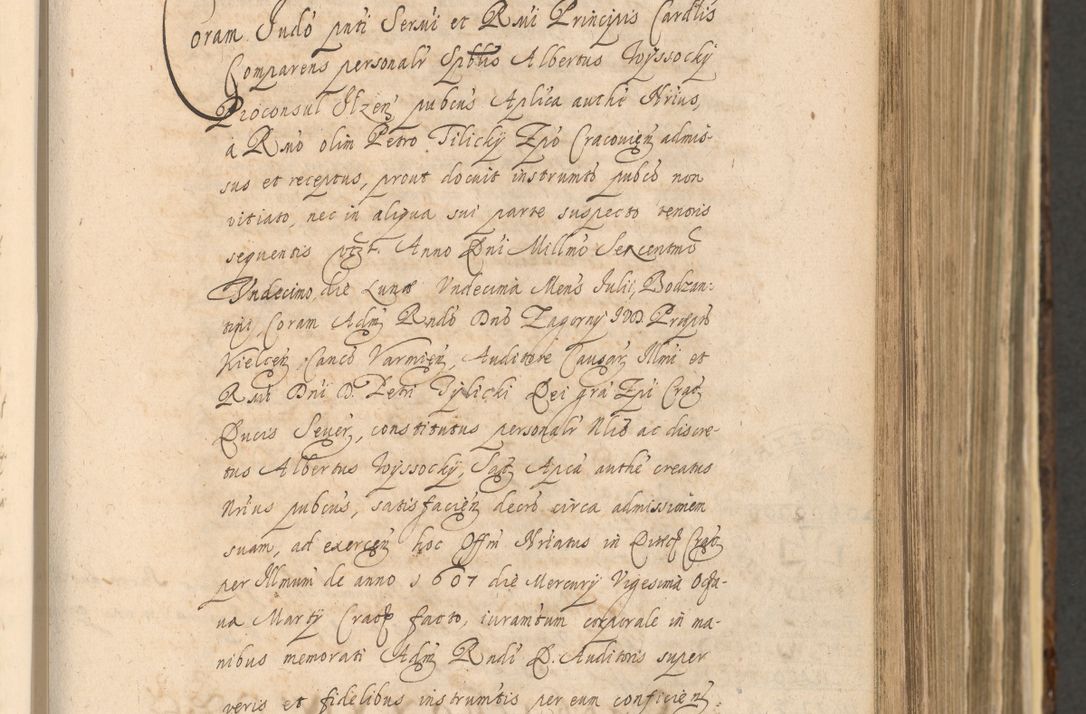 Coram Iudō pnti Sermi et Rmi Principis Cardlis
Comparens personalr Spblis Albertus Wyssocky
Proconsul Ilzen̄ pubcus Aplica authe Nrius,
a Rmo olim Petro Tilicky Epō Cracouien̄ admis-
sus et receptus, prout docuit instrumto pubco non
vitiato, nec in aliqua sui parte suspecto tenoris
sequentis vtzt. Anno Dni Millmo Sexcentmo
Vndecimo, die Lunæ Vndecima Mens Iulii, Bodzan-
tiny, Coram Adm Rndo Dno Zagorny IVD. Prepto
Kielcen̄, Canco Varmien̄, Auditore Causar, Illmi et
Rmi Dni D. Petri Tylicki Dei gra Epi Crac̄
Ducis Seuer̄, constitutus personalr Nlis ac discre-
tus Albertus Wyssocky, Sac̄ Apca authe creatus
Nrius pubcus, satisfacien̄ decro circa admissionem
suam, ad exercen̄ hoc Offm Nriatus in Dioec̄ Crac̄
per Illmum de anno 1607 die Mercury Vigesima Octa-
ua Marty Crac̄ facto, iuramtum corporale in ma-
nibus memorati Adm Rndi D. Auditoris super
veris et fidelibus instrumtis per eum conficien̄